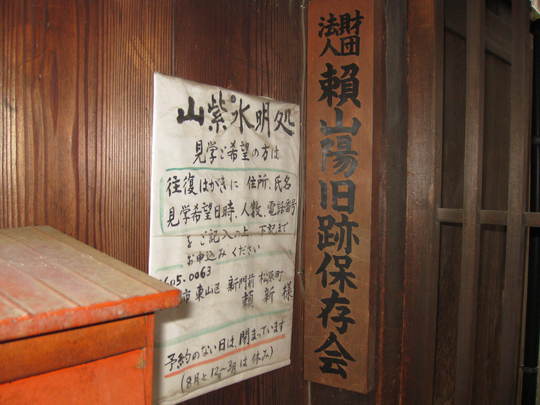 財団
法人
頼山陽旧跡保存会
山紫水明処
見学ご希望の方は
往復はがきに 住所、氏名
見学希望日時、人数、電話番号
をご記入の上 下記まで
お申込みください
605-0063
市 東山区 新門前 松原町
頼 新 様
予約のない日は、閉まっています
(8月と12~3月は休み)